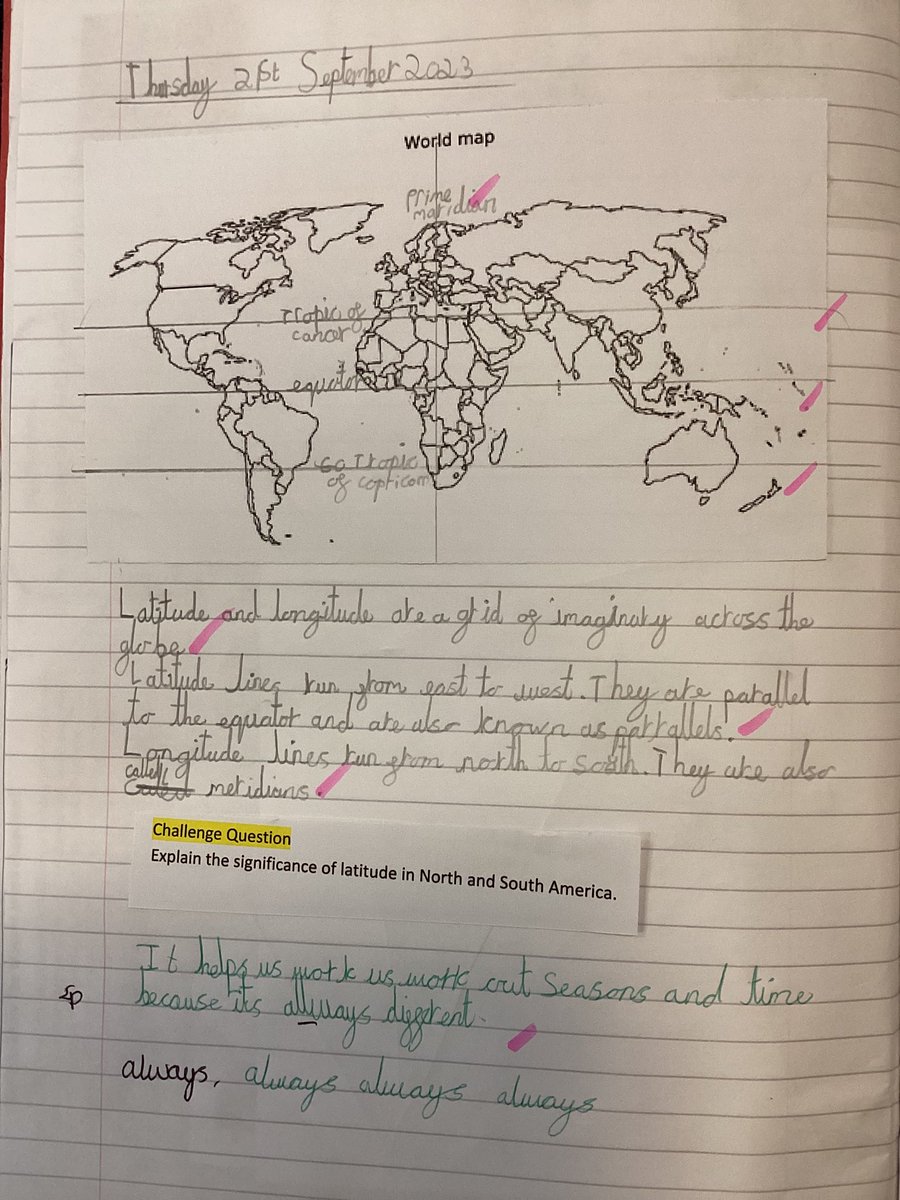 Thursday 21st September 2023
World map
prime
maridian
Tropic of
cancer
equator
Tropic
of capticorn
Latitude and longitude are a grid of imaginary across the
globe.
Latitude lines run from east to west. They are parallel
to the equator and are also known as parrallels.
Longitude lines run from north to south. They are also
called
meridians.
Challenge Question
Explain the significance of latitude in North and South America.
It helps us work us work out Seasons and time
Sp because its allways different.
always, always always always